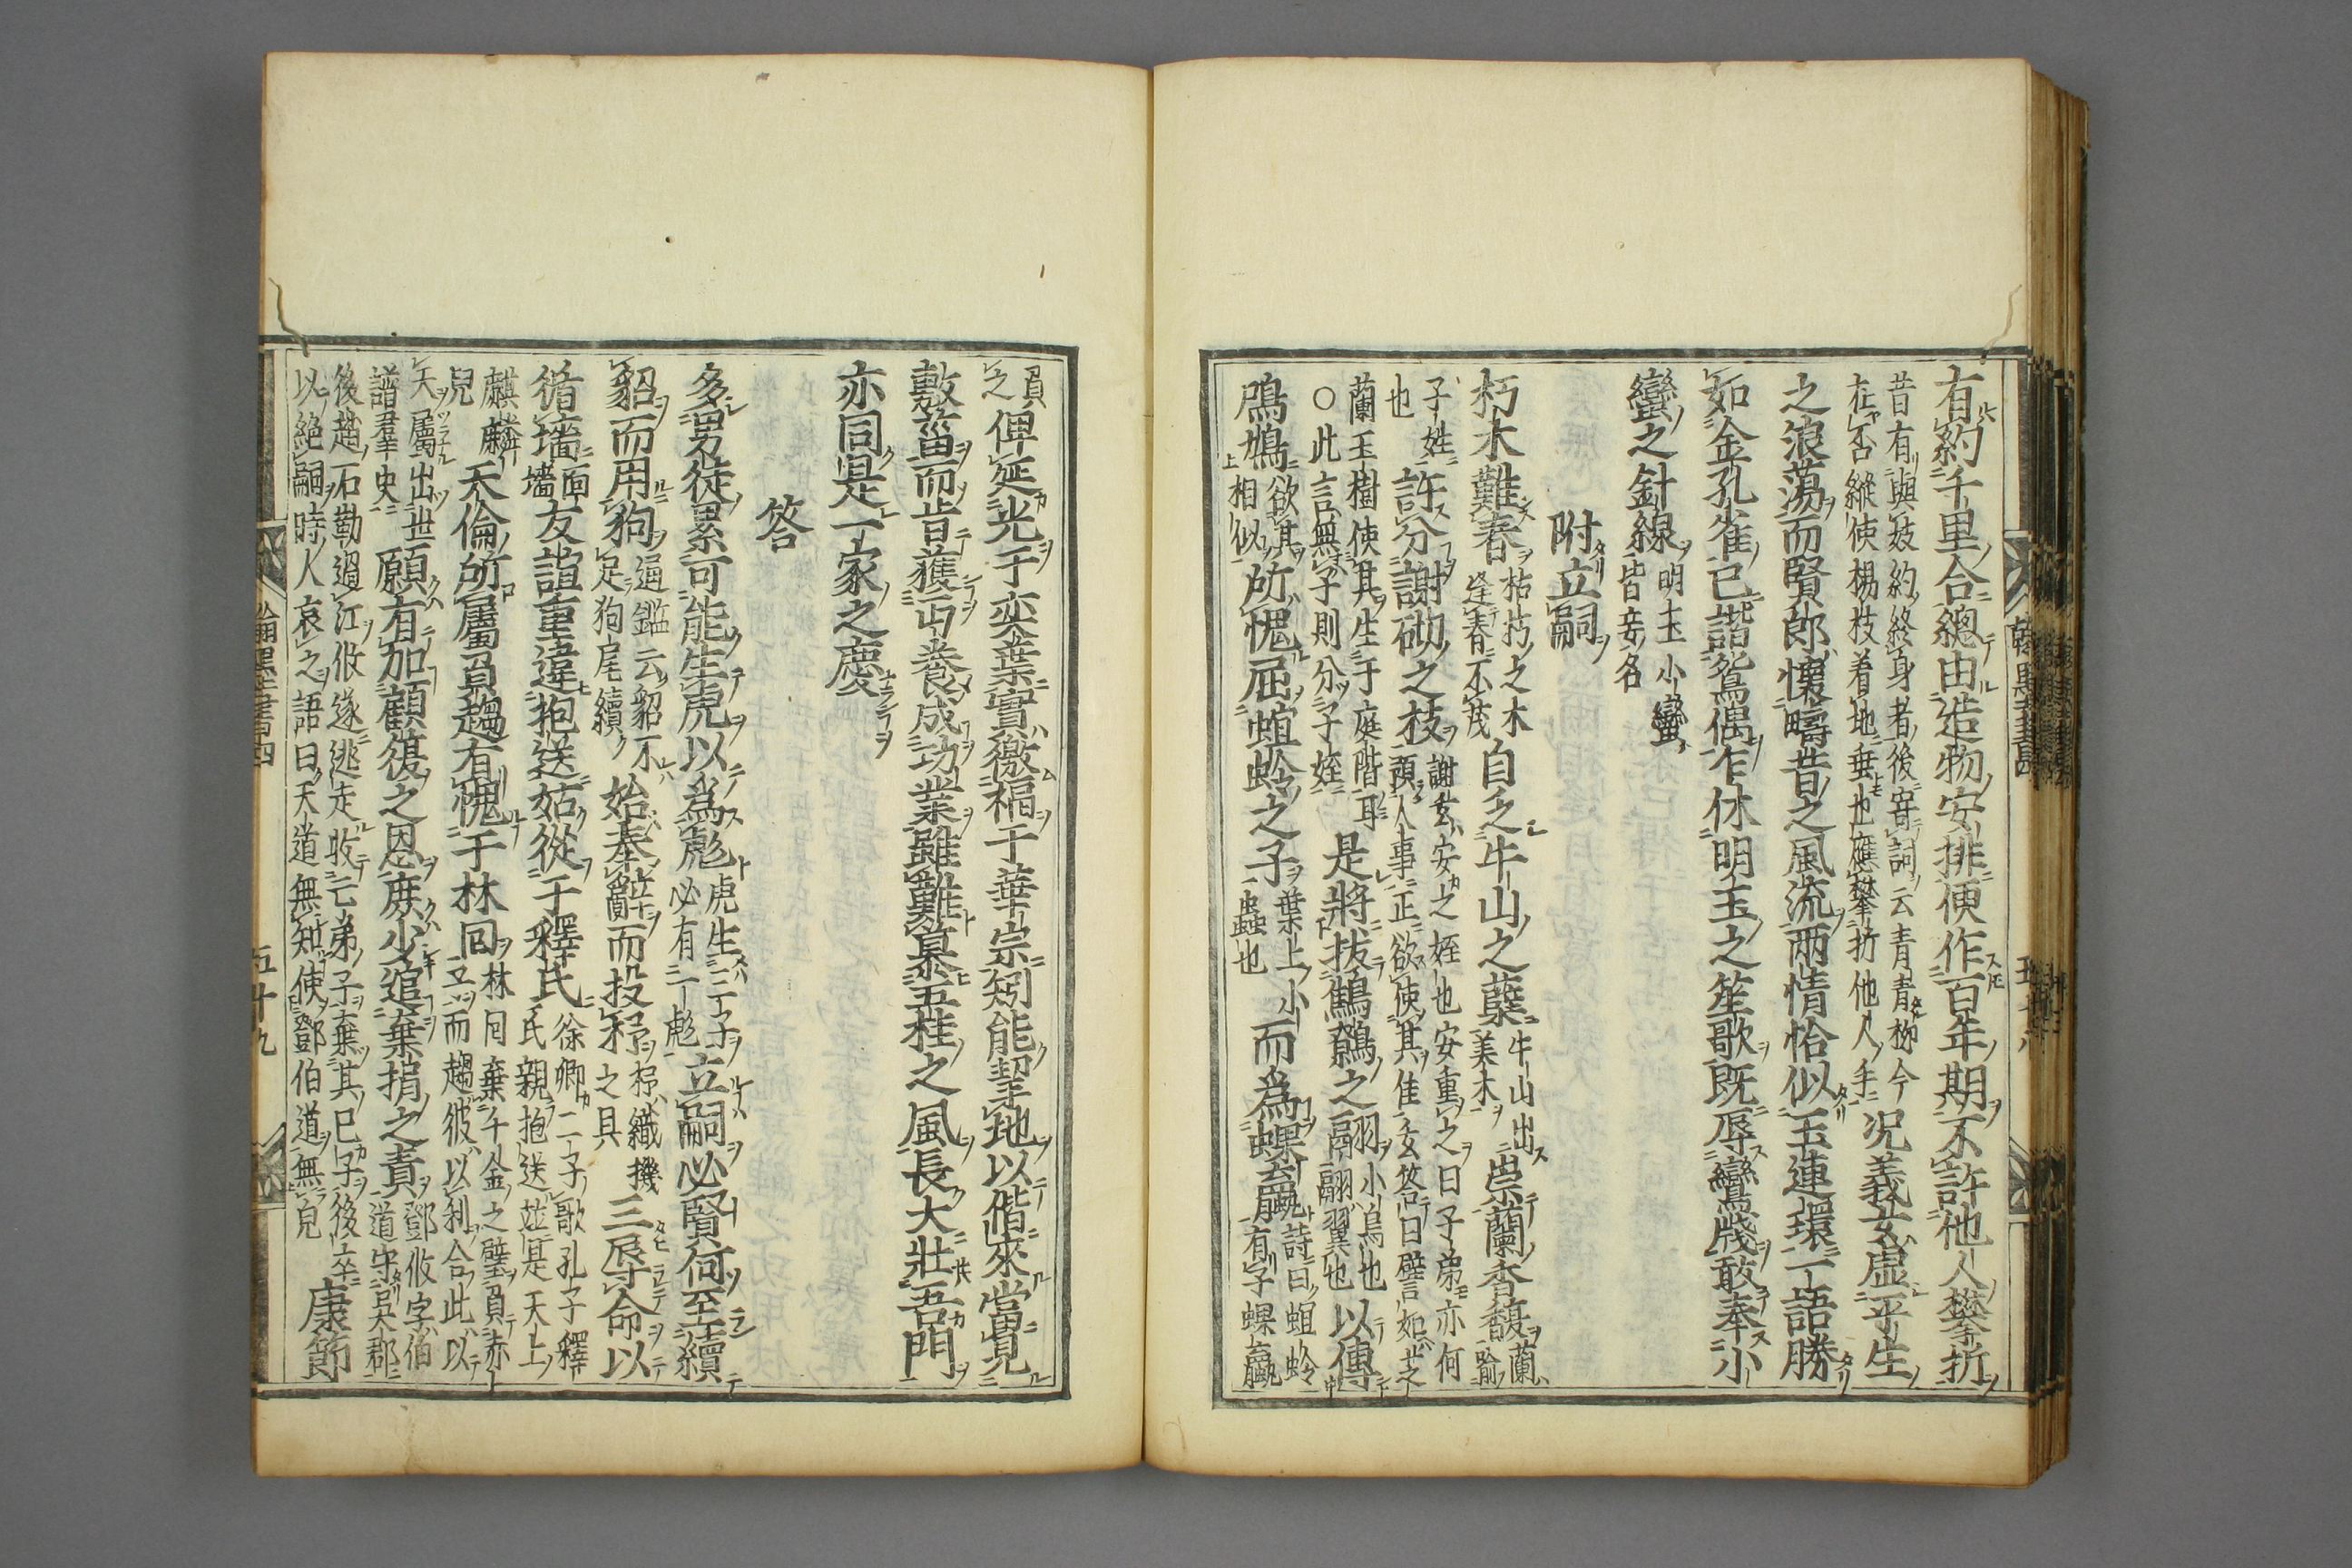 有約千里合總由造物安排便作百年期不許他人攀折
昔有與妓約終身者後寄詞云青青栁今
在否縱使楊枝着地垂也應攀折他人手
況義女虛乎生
之浪蕩而賢郎懷疇昔之風流兩情恰似玉連環一語勝
如金孔雀已諧鴛偶乍休明玉之笙歌既辱鸞牋敢奉小
蠻之針線
明玉小蠻
皆妾名
附立嗣
朽木難春
枯朽之木
逢春不茂
自乏牛山之蘖
牛山出
美木
崇蘭香馥
蘭
喻
子姓
也
許分謝砌之枝
謝玄安之姪也安重之曰子弟亦何
預人事正欲使其佳玄答曰譬如芝
蘭玉樹使其生于庭階耳
○此言無子則分子姪
是將拔鷦鷯之翮
小鳥也
翮翼也
以傳
鴟鳩
欲其
相似
所愧屈蜎蛉之子
葉上小
蟲也
而爲蜾蠃
詩曰蜎蛉
有子蜾蠃
負
之
俾延光于奕葉實徼福于華宗矧能挈地以偕來當見
敷菑而肯獲丐養成功業雖難慕五桂之風長大壯吾門
亦同是一家之慶
答
多男徒累可能生虎以爲彪
虎生三子
必有一彪
立嗣必賢何至續
貂而用狗
通鑑云貂不
足狗尾續
始奉辭而投杼
杼織機
之具
三辱命以
循墻
面
墻
友誼重違抱送姑從于釋氏
徐卿二子歌孔子釋
氏親抱送並是天上
麒麟
兒
天倫所屬負趨有愧于林回
林回棄千金之璧負赤
子而趨彼以利合此以
天屬出世
譜羣史
願有加顧復之恩庶少追棄捐之責
鄧攸字伯
道守吳郡
後趙石勒過江攸遂逃走收亡弟子棄其已子後卒
以絶嗣時人哀之語曰天道無知使鄧伯道無兒
康節
翰墨全書四
五十九